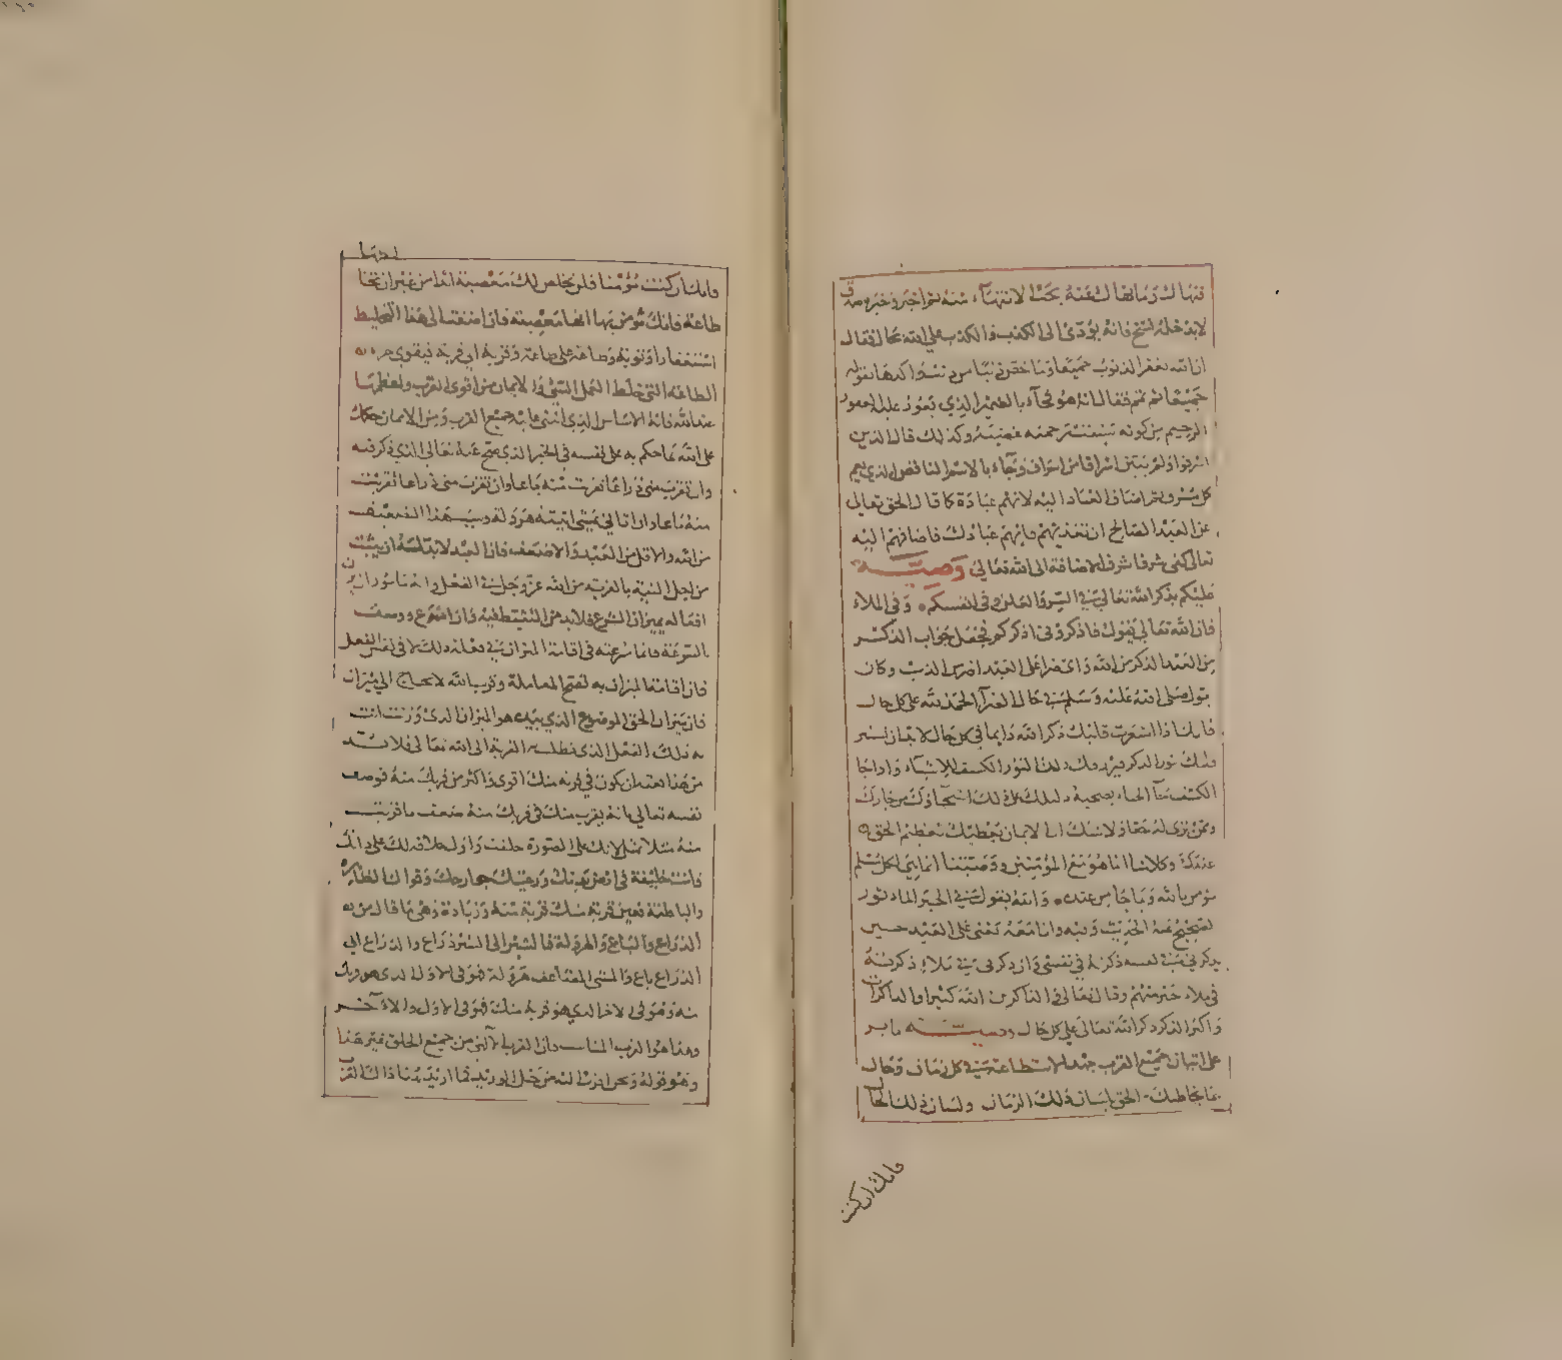 لابد خله النسخ فانه يؤدى الى الكذب والكذب على الله محال فقال
ان الله يغفر الذنوب جميعا وما خص ذنبا من ذنب واكدها بقوله
جميعا ثم تمم فقال انه هو فجاء بالضمير الذي يعود عليه الغفور
الرحيم من كونه سبقت رحمته غضبه وكذلك قال الذين
اسرفوا ولم يعين اسرافا من اسراف وجاء بالاسم الناقص الذي يعم
كل مسرف ثم اضاف العباد اليه لانهم عباده كما قال الحق تعالى
عن العبد الصالح ان تعذبهم فانهم عبادك فاضافهم اليه
تعالى كفى شرفا شرف الاضافة الى الله تعالى وصية
عليكم بذكر الله تعالى في السر والعلن وفي انفسكم وفي الملاء
فان الله تعالى يقول فاذكروني اذكركم فجعل جواب الذكر
من العبد الذكر من الله واى ضراء على العبد اضر من الذنب وكان
يقول صلى الله عليه وسلم في حال الضراء الحمد لله على كل حال
فانك اذا اشعرت قلبك ذكر الله دايما في كل حال لابد ان يستنير
قلبك نور الذكر فيرزقك ذلك النور الكشف للاشياء واذا جا
الكشف جاء الحياء يصحبه دليلك على ذلك استحياؤك من جارك
وممن ترى له حقا ولا شك ان الايمان يعطيك تعظيم الحق
عندك وكلامنا انما هو مع المؤمنين ووصيتنا انما هي لكل مسلم
مومن بالله وبما جا من عنده والله يقول في الخبر الماثور
الصحيح عنه الحديث وفيه وانا معه يعنى مع العبد حين
يذكرني في نفسه ذكرته في نفسي وان ذكرني في ملاء ذكرته
في ملاء خير منهم وقال تعالى والذاكرين الله كثيرا والذاكرات
واكبر الذكر ذكر الله تعالى على كل حال وصية ثابر
على اتيان جميع القرب جهد الاستطاعة في كل زمان وحال
بما يخاطبك الحق بلسان ذلك الزمان ولسان ذلك الحال
فانك ان كنت
فانك ان كنت مؤمنا فلن يخلص لك معصية ابدا من غير ان يخالطها
طاعة فانك مؤمن بها انها معصية فان اضفت الى هذا التخليط
استغفارا وتوبة وطاعة على طاعة وقربة الى قربة فيقوى جزء
الطاعة التي خلط العمل السيئ والايمان من اقوى القرب واعظمها
عند الله فانه الاساس الذي انبنى عليه جميع القرب ومن الايمان حكمك
على الله بما حكم به على نفسه في الخبر الذي صح عنه تعالى الذي ذكر فيه
وان تقرب منى ذراعا تقربت منه باعا وان تقرب منى ذراعا تقربت
منه باعا وان اتاني يمشى اتيته هرولة وسبب هذا التضعيف
من الله والاقل من العبد والاضعف فان العبد لابد له ان يثبت
من اجل النية بالقربة من الله عز وجل في الفعل وانه مامور ان يزن
افعاله بميزان الشرع فلابد من التثبط فيه وان اسرع ووصف
بالسرعة فانما سرعته في اقامة الميزان في فعله ذلك لا في نفس الفعل
فان اقامة الميزان به تصح المعاملة وقرب الله لا يحتاج الى ميزان
فان ميزان الحق الموضوع الذي بيده هو الميزان الذي وزنت انت
به ذلك الفعل الذي تطلب به القربة الى الله تعالى فلابد
من هذا نعته ان يكون في قربه منك اقوى واكثر من قربك منه فوصف
نفسه تعالى بانه يقرب منك في قربك منه ضعف ما قربت
منه مثلا بمثل لانك على الصورة خلقت واول خلافة لك على ذاتك
فانت خليفة في ارض بدنك ورعيتك جوارحك وقواك الظاهرة
والباطنة فعين قربه منك قربك منه وزيادة وهي ما قال من
الذراع والباع والهرولة فالشبر الى الشبر ذراع والذراع الى
الذراع باع والمشى المضاعف هرولة فهو في الاول الذي هو قربك
منه وهو في الاخر الذي هو قربه منك فهو في الاول والاخر
وهذا هو القرب المناسب فان القرب الالهي من جميع الخلق غير هذا
وهو قوله ونحن اقرب اليه من حبل الوريد فما اريد هنا ذاك القرب